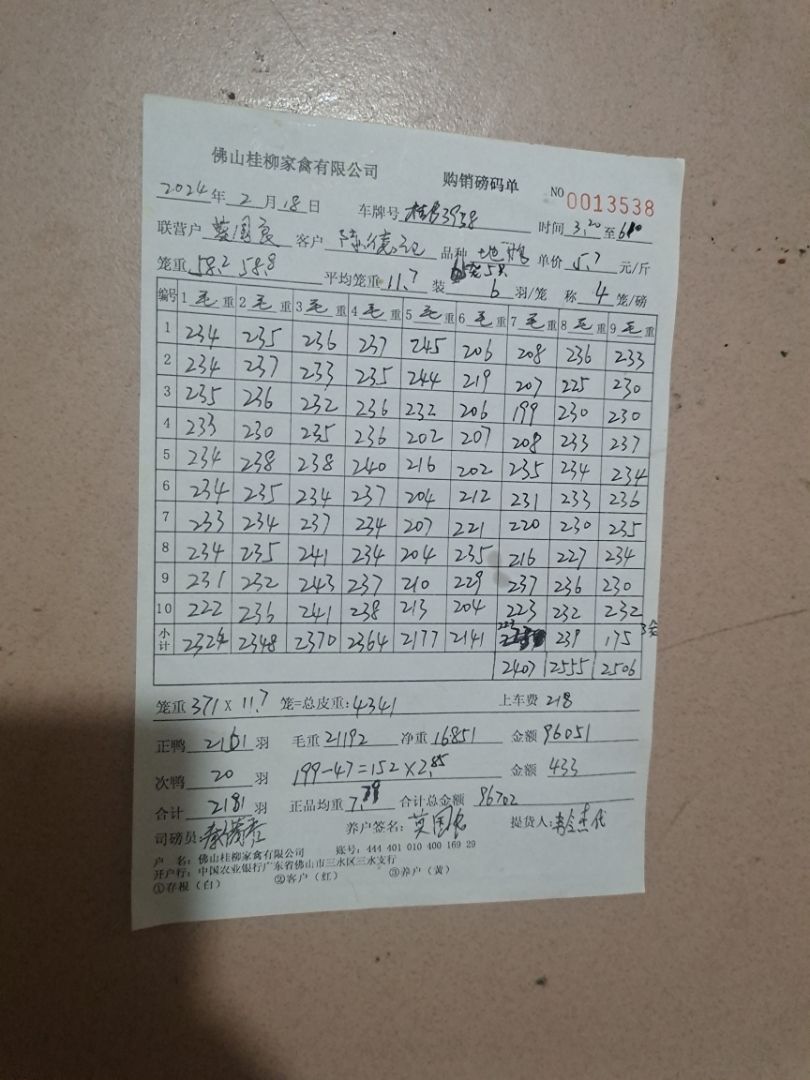 佛山桂柳家禽有限公司 购销磅码单 NO 0013538
2024年 2 月 18 日 车牌号 桂 3938 时间 3.20 至 6.10
联营户 客户 品种 单价 5.7 元/斤
笼重 58.2 58.8 平均笼重 11.7 装 6 羽/笼 称 4 笼/磅
编号 1 毛 重 2 毛 重 3 毛 重 4 毛 重 5 毛 重 6 毛 重 7 毛 重 8 毛 重 9 毛 重
1 234 235 236 237 245 206 208 236 233
2 234 237 233 235 244 219 207 225 230
3 235 236 232 236 232 206 199 230 230
4 233 230 235 236 202 207 208 233 237
5 234 238 238 240 216 202 235 234 234
6 234 235 234 237 204 212 231 233 236
7 233 234 237 234 207 221 220 230 235
8 234 235 241 234 204 235 216 227 234
9 231 232 243 237 210 229 237 236 230
10 222 236 241 238 213 204 223 232 232
小计 2324 2348 2370 2364 2177 2141 223 239 175
2407 2555 2506
笼重 371 X 11.7 笼=总皮重: 4341 上车费 218
正鸭 2161 羽 毛重 21192 净重 16851 金额 96051
次鸭 20 羽 199-47=152×2.85 金额 433
合计 2181 羽 正品均重 7.79 合计总金额 96702
司磅员: 养户签名: 提货人:
户 名: 佛山桂柳家禽有限公司 账号: 444 401 010 400 169 29
开户行: 中国农业银行广东省佛山市三水区三水支行
①存根(白) ②客户(红) ③养户(黄)